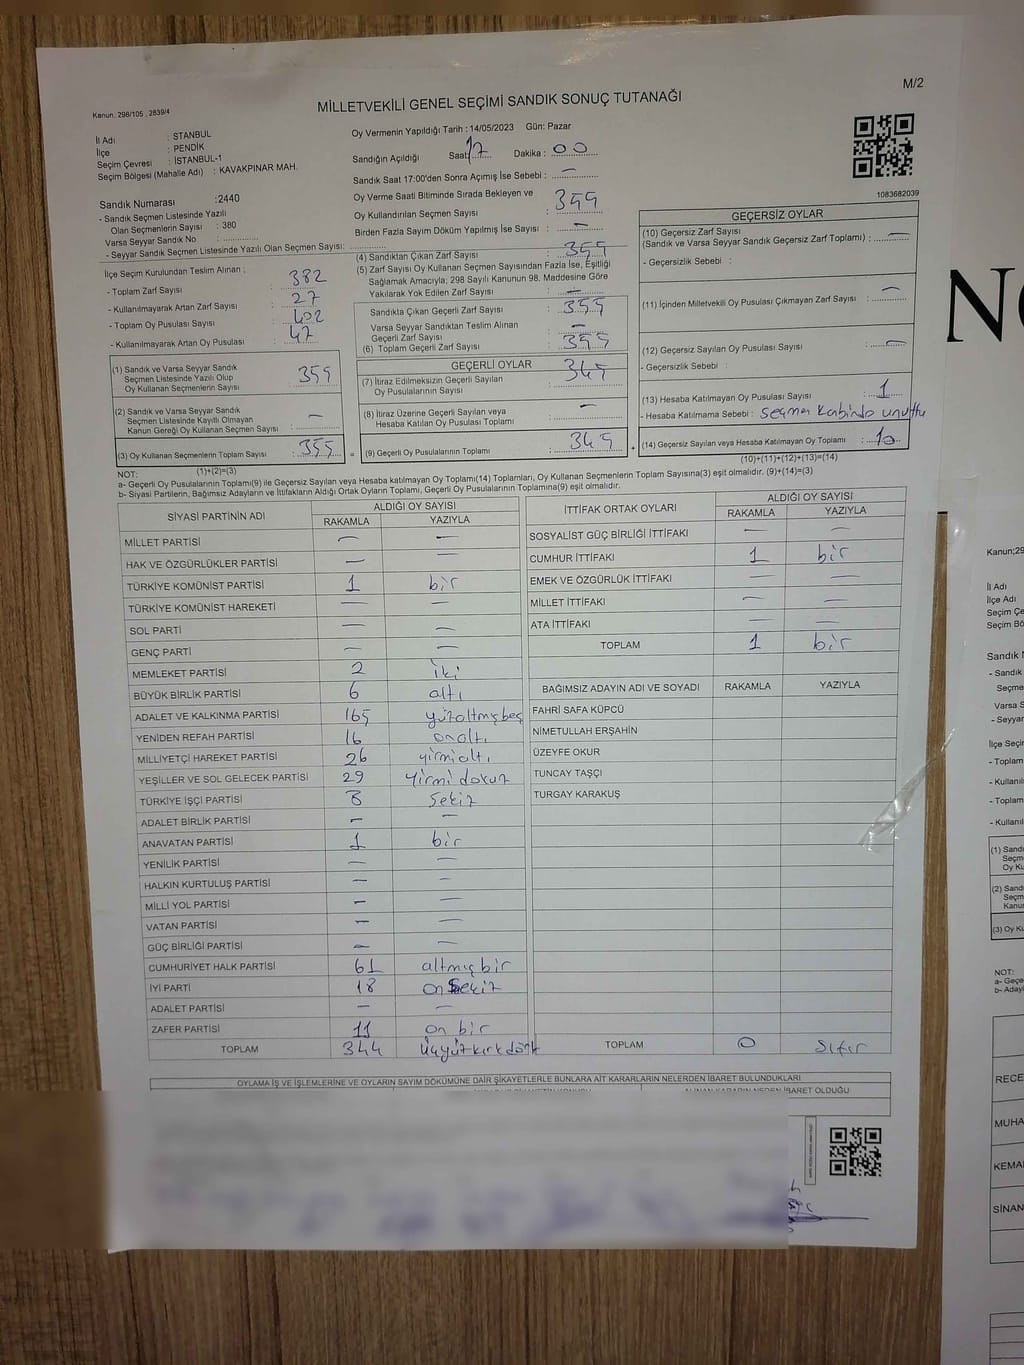 M/2
Kanun; 298/105 , 2839/4
MİLLETVEKİLİ GENEL SEÇİMİ SANDIK SONUÇ TUTANAĞI
İl Adı : STANBUL
İlçe : PENDİK
Seçim Çevresi : İSTANBUL-1
Seçim Bölgesi (Mahalle Adı) : KAVAKPINAR MAH.
Oy Vermenin Yapıldığı Tarih : 14/05/2023 Gün: Pazar
Sandığın Açıldığı Saat 17 Dakika : 00
Sandık Saat 17:00'den Sonra Açımış İse Sebebi : —
Oy Verme Saati Bitiminde Sırada Bekleyen ve
Oy Kullandırılan Seçmen Sayısı
Birden Fazla Sayım Döküm Yapılmış İse Sayısı : —
1083682039
Sandık Numarası :2440
- Sandık Seçmen Listesinde Yazılı
Olan Seçmenlerin Sayısı : 380
Varsa Seyyar Sandık No :
- Seyyar Sandık Seçmen Listesinde Yazılı Olan Seçmen Sayısı:
İlçe Seçim Kurulundan Teslim Alınan ;
- Toplam Zarf Sayısı 382
- Kullanılmayarak Artan Zarf Sayısı : 27
- Toplam Oy Pusulası Sayısı : 402
- Kullanılmayarak Artan Oy Pusulası : 47
(1) Sandık ve Varsa Seyyar Sandık
Seçmen Listesinde Yazılı Olup
Oy Kullanan Seçmenlerin Sayısı : 355
(2) Sandık ve Varsa Seyyar Sandık
Seçmen Listesinde Kayıtlı Olmayan
Kanun Gereği Oy Kullanan Seçmen Sayısı: —
(3) Oy Kullanan Seçmenlerin Toplam Sayısı : 355
(1)+(2)=(3)
(4) Sandıktan Çıkan Zarf Sayısı : 355
(5) Zarf Sayısı Oy Kullanan Seçmen Sayısından Fazla İse, Eşitliği
Sağlamak Amacıyla; 298 Sayılı Kanunun 98. Maddesine Göre
Yakılarak Yok Edilen Zarf Sayısı : —
Sandıkta Çıkan Geçerli Zarf Sayısı : 355
Varsa Seyyar Sandıktan Teslim Alınan
Geçerli Zarf Sayısı : —
(6) Toplam Geçerli Zarf Sayısı : 355
GEÇERLİ OYLAR
(7) İtiraz Edilmeksizin Geçerli Sayılan
Oy Pusulasının Sayısı : 345
(8) İtiraz Üzerine Geçerli Sayılan veya
Hesaba Katılan Oy Pusulası Toplamı : —
(9) Geçerli Oy Pusulalarının Toplamı : 345
GEÇERSİZ OYLAR
(10) Geçersiz Zarf Sayısı
(Sandık ve Varsa Seyyar Sandık Geçersiz Zarf Toplamı) : —
- Geçersizlik Sebebi :
(11) İçinden Milletvekili Oy Pusulası Çıkmayan Zarf Sayısı : —
(12) Geçersiz Sayılan Oy Pusulası Sayısı : —
- Geçersizlik Sebebi :
(13) Hesaba Katılmayan Oy Pusulası Sayısı : 1
- Hesaba Katılmama Sebebi : seçmen kabinde unuttu
(14) Geçersiz Sayılan veya Hesaba Katılmayan Oy Toplamı : 10
(10)+(11)+(12)+(13)=(14)
NOT:
a- Geçerli Oy Pusulalarının Toplamı(9) ile Geçersiz Sayılan veya Hesaba katılmayan Oy Toplamı(14) Toplamları, Oy Kullanan Seçmenlerin Toplam Sayısına(3) eşit olmalıdır. (9)+(14)=(3)
b- Siyasi Partilerin, Bağımsız Adayların ve İttifakların Aldığı Ortak Oyların Toplamı, Geçerli Oy Pusulalarının Toplamına(9) eşit olmalıdır.
SİYASİ PARTİNİN ADI ALDIĞI OY SAYISI
RAKAMLA YAZIYLA
MİLLET PARTİSİ — —
HAK VE ÖZGÜRLÜKLER PARTİSİ — —
TÜRKİYE KOMÜNİST PARTİSİ 1 bir
TÜRKİYE KOMÜNİST HAREKETİ — —
SOL PARTİ — —
GENÇ PARTİ — —
MEMLEKET PARTİSİ 2 iki
BÜYÜK BİRLİK PARTİSİ 6 altı
ADALET VE KALKINMA PARTİSİ 165 yüzaltmışbeş
YENİDEN REFAH PARTİSİ 16 onaltı
MİLLİYETÇİ HAREKET PARTİSİ 26 yirmialtı
YEŞİLLER VE SOL GELECEK PARTİSİ 29 yirmidokuz
TÜRKİYE İŞÇİ PARTİSİ 8 sekiz
ADALET BİRLİK PARTİSİ — —
ANAVATAN PARTİSİ 1 bir
YENİLİK PARTİSİ — —
HALKIN KURTULUŞ PARTİSİ — —
MİLLİ YOL PARTİSİ — —
VATAN PARTİSİ — —
GÜÇ BİRLİĞİ PARTİSİ — —
CUMHURİYET HALK PARTİSİ 61 altmışbir
İYİ PARTİ 18 onsekiz
ADALET PARTİSİ — —
ZAFER PARTİSİ 11 on bir
TOPLAM 344 üçyüzkırkdört
İTTİFAK ORTAK OYLARI ALDIĞI OY SAYISI
RAKAMLA YAZIYLA
SOSYALİST GÜÇ BİRLİĞİ İTTİFAKI — —
CUMHUR İTTİFAKI 1 bir
EMEK VE ÖZGÜRLÜK İTTİFAKI — —
MİLLET İTTİFAKI — —
ATA İTTİFAKI — —
TOPLAM 1 bir
BAĞIMSIZ ADAYIN ADI VE SOYADI RAKAMLA YAZIYLA
FAHRİ SAFA KÜPCÜ
NİMETULLAH ERŞAHİN
ÜZEYFE OKUR
TUNCAY TAŞÇI
TURGAY KARAKUŞ
TOPLAM 0 sıfır
OYLAMA İŞ VE İŞLEMLERİNE VE OYLARIN SAYIM DÖKÜMÜNE DAİR ŞİKAYETLERLE BUNLARA AİT KARARLARIN NELERDEN İBARET BULUNDUKLARI
ALINAN KARARIN NEDEN İBARET OLDUĞU
Kanun;29
İl Adı
İlçe Adı
Seçim Çe
Seçim Bö
Sandık
- Sandık
Seçme
Varsa S
- Seyyar
İlçe Seçir
- Toplam
- Kullanıl
- Toplam
- Kullanıl
(1) Sandı
Seçm
Oy Ku
(2) Sand
Seçm
Kanu
(3) Oy Ku
NOT:
a- Geçe
b- Aday
RECE
MUHA
KEMA
SİNAN